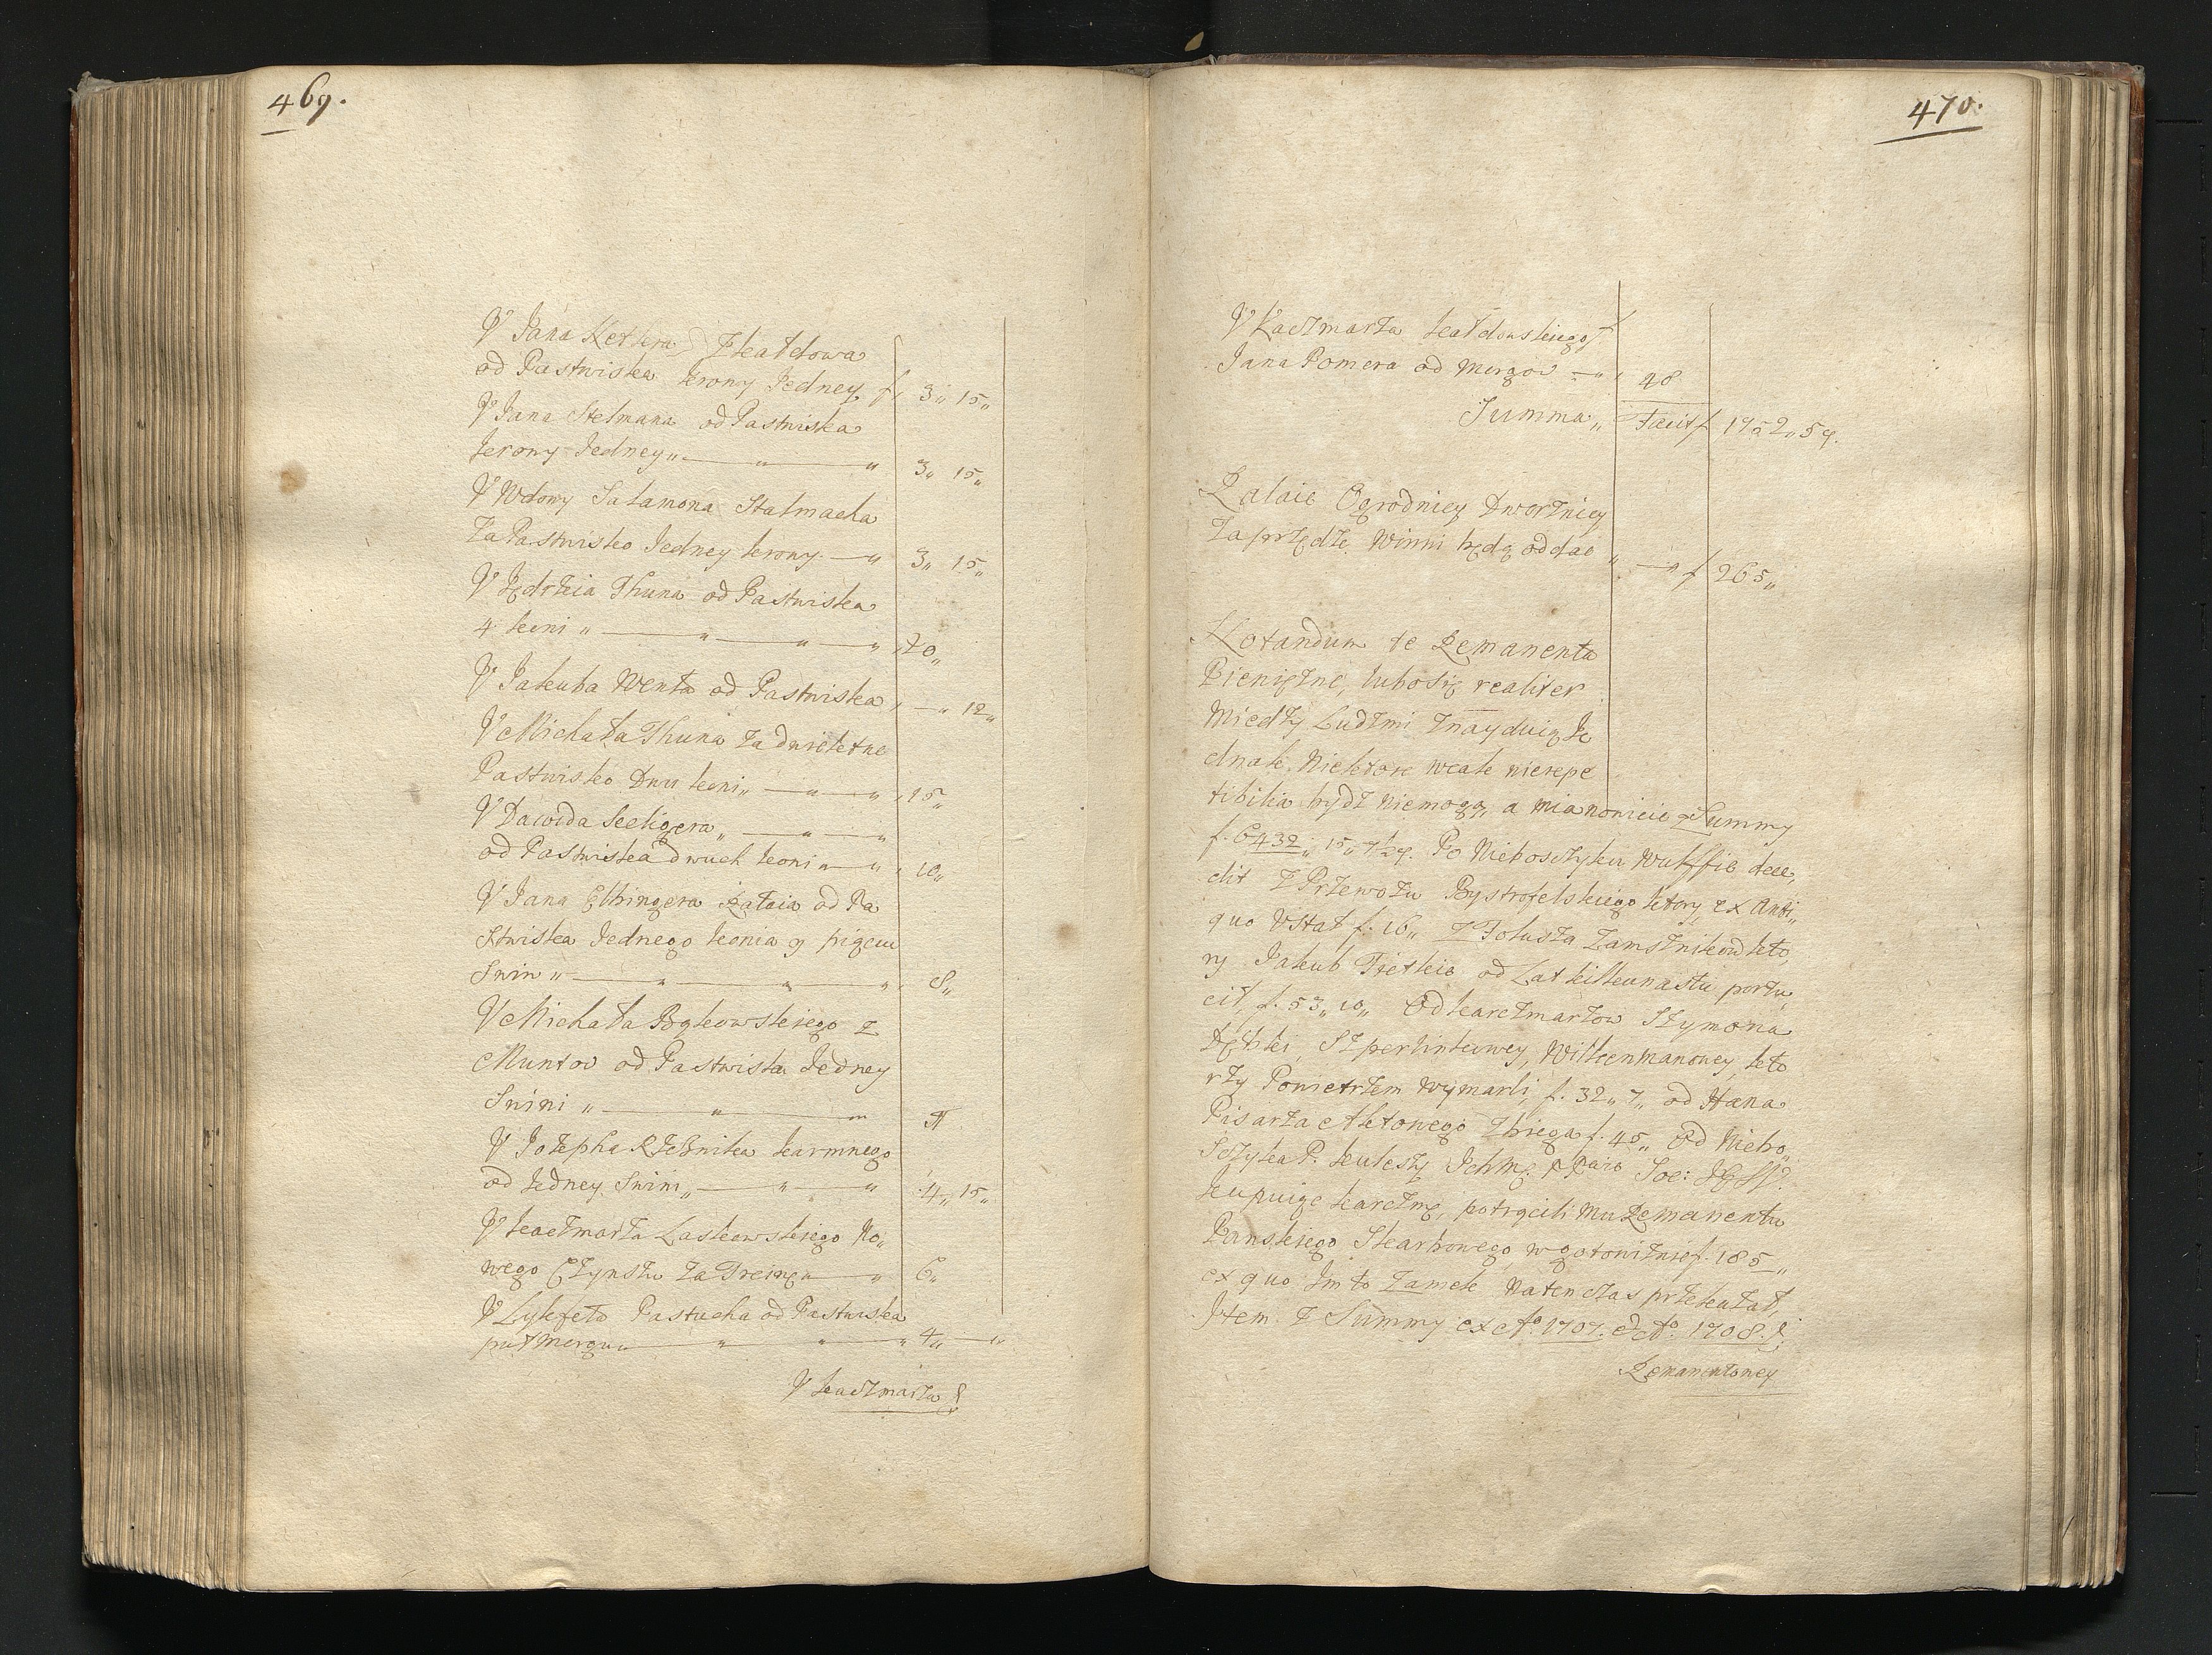 469.
V Jana Ketlera Zkałdowa
od Pastwiska krowy Jedney f 3„ 15„
V Jana Stelmana od Pastwiska
krowy Jedney„ — „ — „ 3„ 15„
V Wdowy Salamona Stalmacha
Za Pastwisko Jedney krowy — „ 3„ 15„
V Jędrzeia Thuna od Pastwiska
4 koni „ — „ — „ — „ 20„
V Jakuba Wenta od Pastwiska „ — „ 12„
V Michała Thuna za dwieletne
Pastwisko Dwu koni„ — „ — „ 15„
V Dawida Seeligera„ — „ — „
od Pastwiska dwuch koni „ — „ 10„
V Jana Elbingera Rataia od Pa
stwiska Jednego konia y pięciu
Swin „ — „ — „ — „ 8„
V Michała Bąkowskiego z
Muntow od Pastwiska Jedney
Swini „ — „ — „ 4
V Jozepha Rzeźnika karmnego
od Jedney Swini„ — „ — „ 4„ 15„
V kaczmarza Laskowskiego No„
wego Czynszu za — „ 6„
V Pastucha od Pastwiska
puł Morgu„ — „ — „ 4„ — „
V kaczmarza
470.
V Kaczmarza kałdowskiego
Jana Pomera od Morgow — „ 48
Summa„ Facit f 1952„ 5 4.
Rataie Ogrodnicy Dworznicy
za przędze Winni będą oddac „ — „ f 265„
Notandum ze Remanenta
Pieniężne, lubo się realiter
Miedzy Ludzmi znayduią Je
dnak Niektore wcale nierepe
tibilia bydz niemogą, a mianowicie z Summy
f. 6432„ 15„ Po Nieboszczyku Wulffie dece„
dit z Przewozu Bystrofelskiego ktory, ex Anti„
quo Vstał f. 16„ z Folusza Zamsznikow kto„
ry Jakub Tietkie od Lat kilkunastu porzu„
cił, f. 53„ 10„ Od karczmarzow Szymona
Szperlinkowey, Wilkenmanowey, kto
rzy Powietrzem Wymarli, f. 32„ 7„ od Hana
Pisarza Aktowego Zbiega f. 45„ Od Niebo„
Szczyka P. kuleszy Soc:
kupuiąc karczmę, potrącili Mu Remanentu
Panskiego Skarbowego w gotowiznie f. 185„
ex quo Im to Zamek Naten czas przekazał,
Item z Summy ex Ao. 1707. & Ao. 1708.
Remanentowey